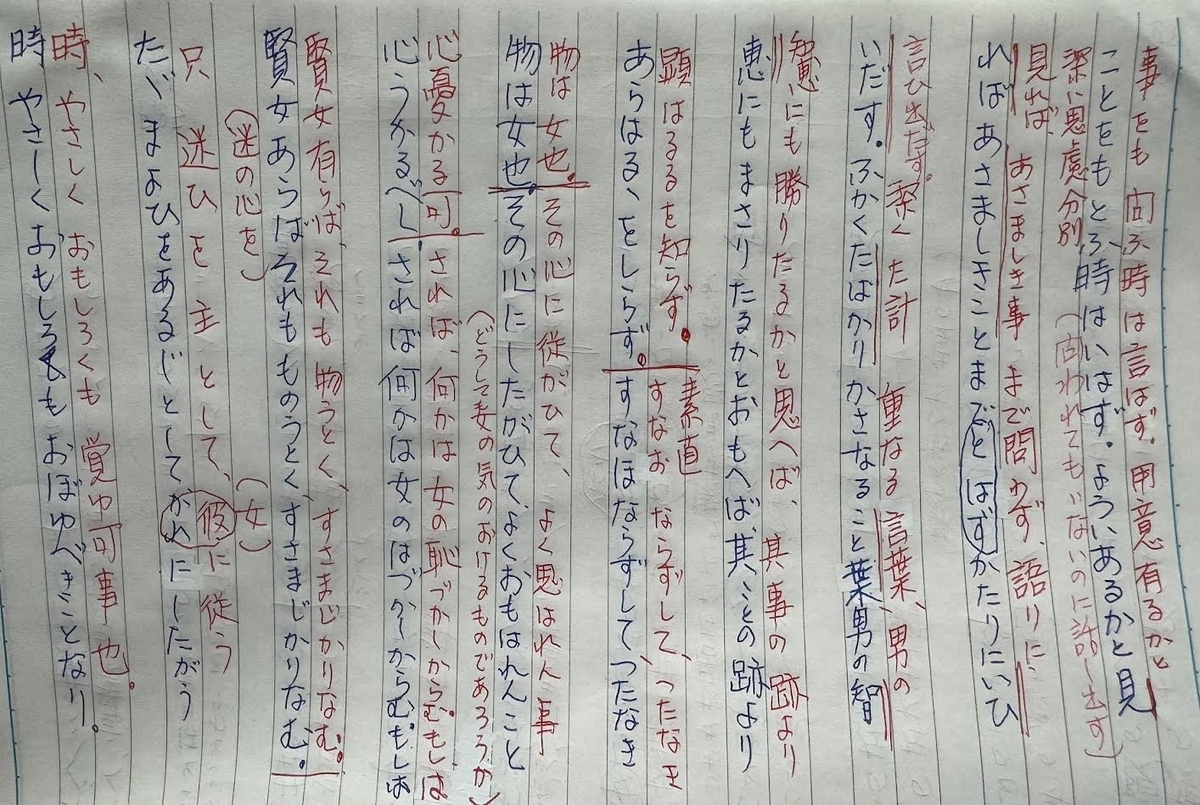 事をも 问ふ時は言はず。用意有るかと
ことをもとふ時はいはず。よういあるかと見
深い思慮分別 (问われてもいないのに話し出す)
見れば あさましき事まで問わず、語りに、
ればあさましきことまでとはずかたりにいひ
言ひ出だす。深くた計 重なる言葉、男の
いだす。ふかくたばかりかさなること葉男の智
智慧にも勝りたるかと思へば、其事の跡より
恵にもまさりたるかとおもへば、其ことの跡より
顕はるるを知らず。素直 すなおならずして、つたなき
あらはるゝをしらず。すなほならずして、つたなき
物は女也。その心に従がひて、よく思はれん事
物は女也。その心にしたがひて、よくおもはれんこと
(どうして妻の気のおけるものであろうか)
心憂かる可。されば、何かは女の恥づかしからむ。もしは
心うかるべし。されば何かは女のはづかしからむ。もしは
賢女有らば、それも物うとく、すさまじかりなむ。
賢女あらばそれもものうとく、すさまじかりなむ。
(迷の心を) (女)
只 迷ひを主として、彼に従う
たゞまよひをあるじとしてかれにしたがう
時、やさしくおもしろくも 覚ゆ可事也。
時 やさしくおもしろくもおぼゆべきことなり。